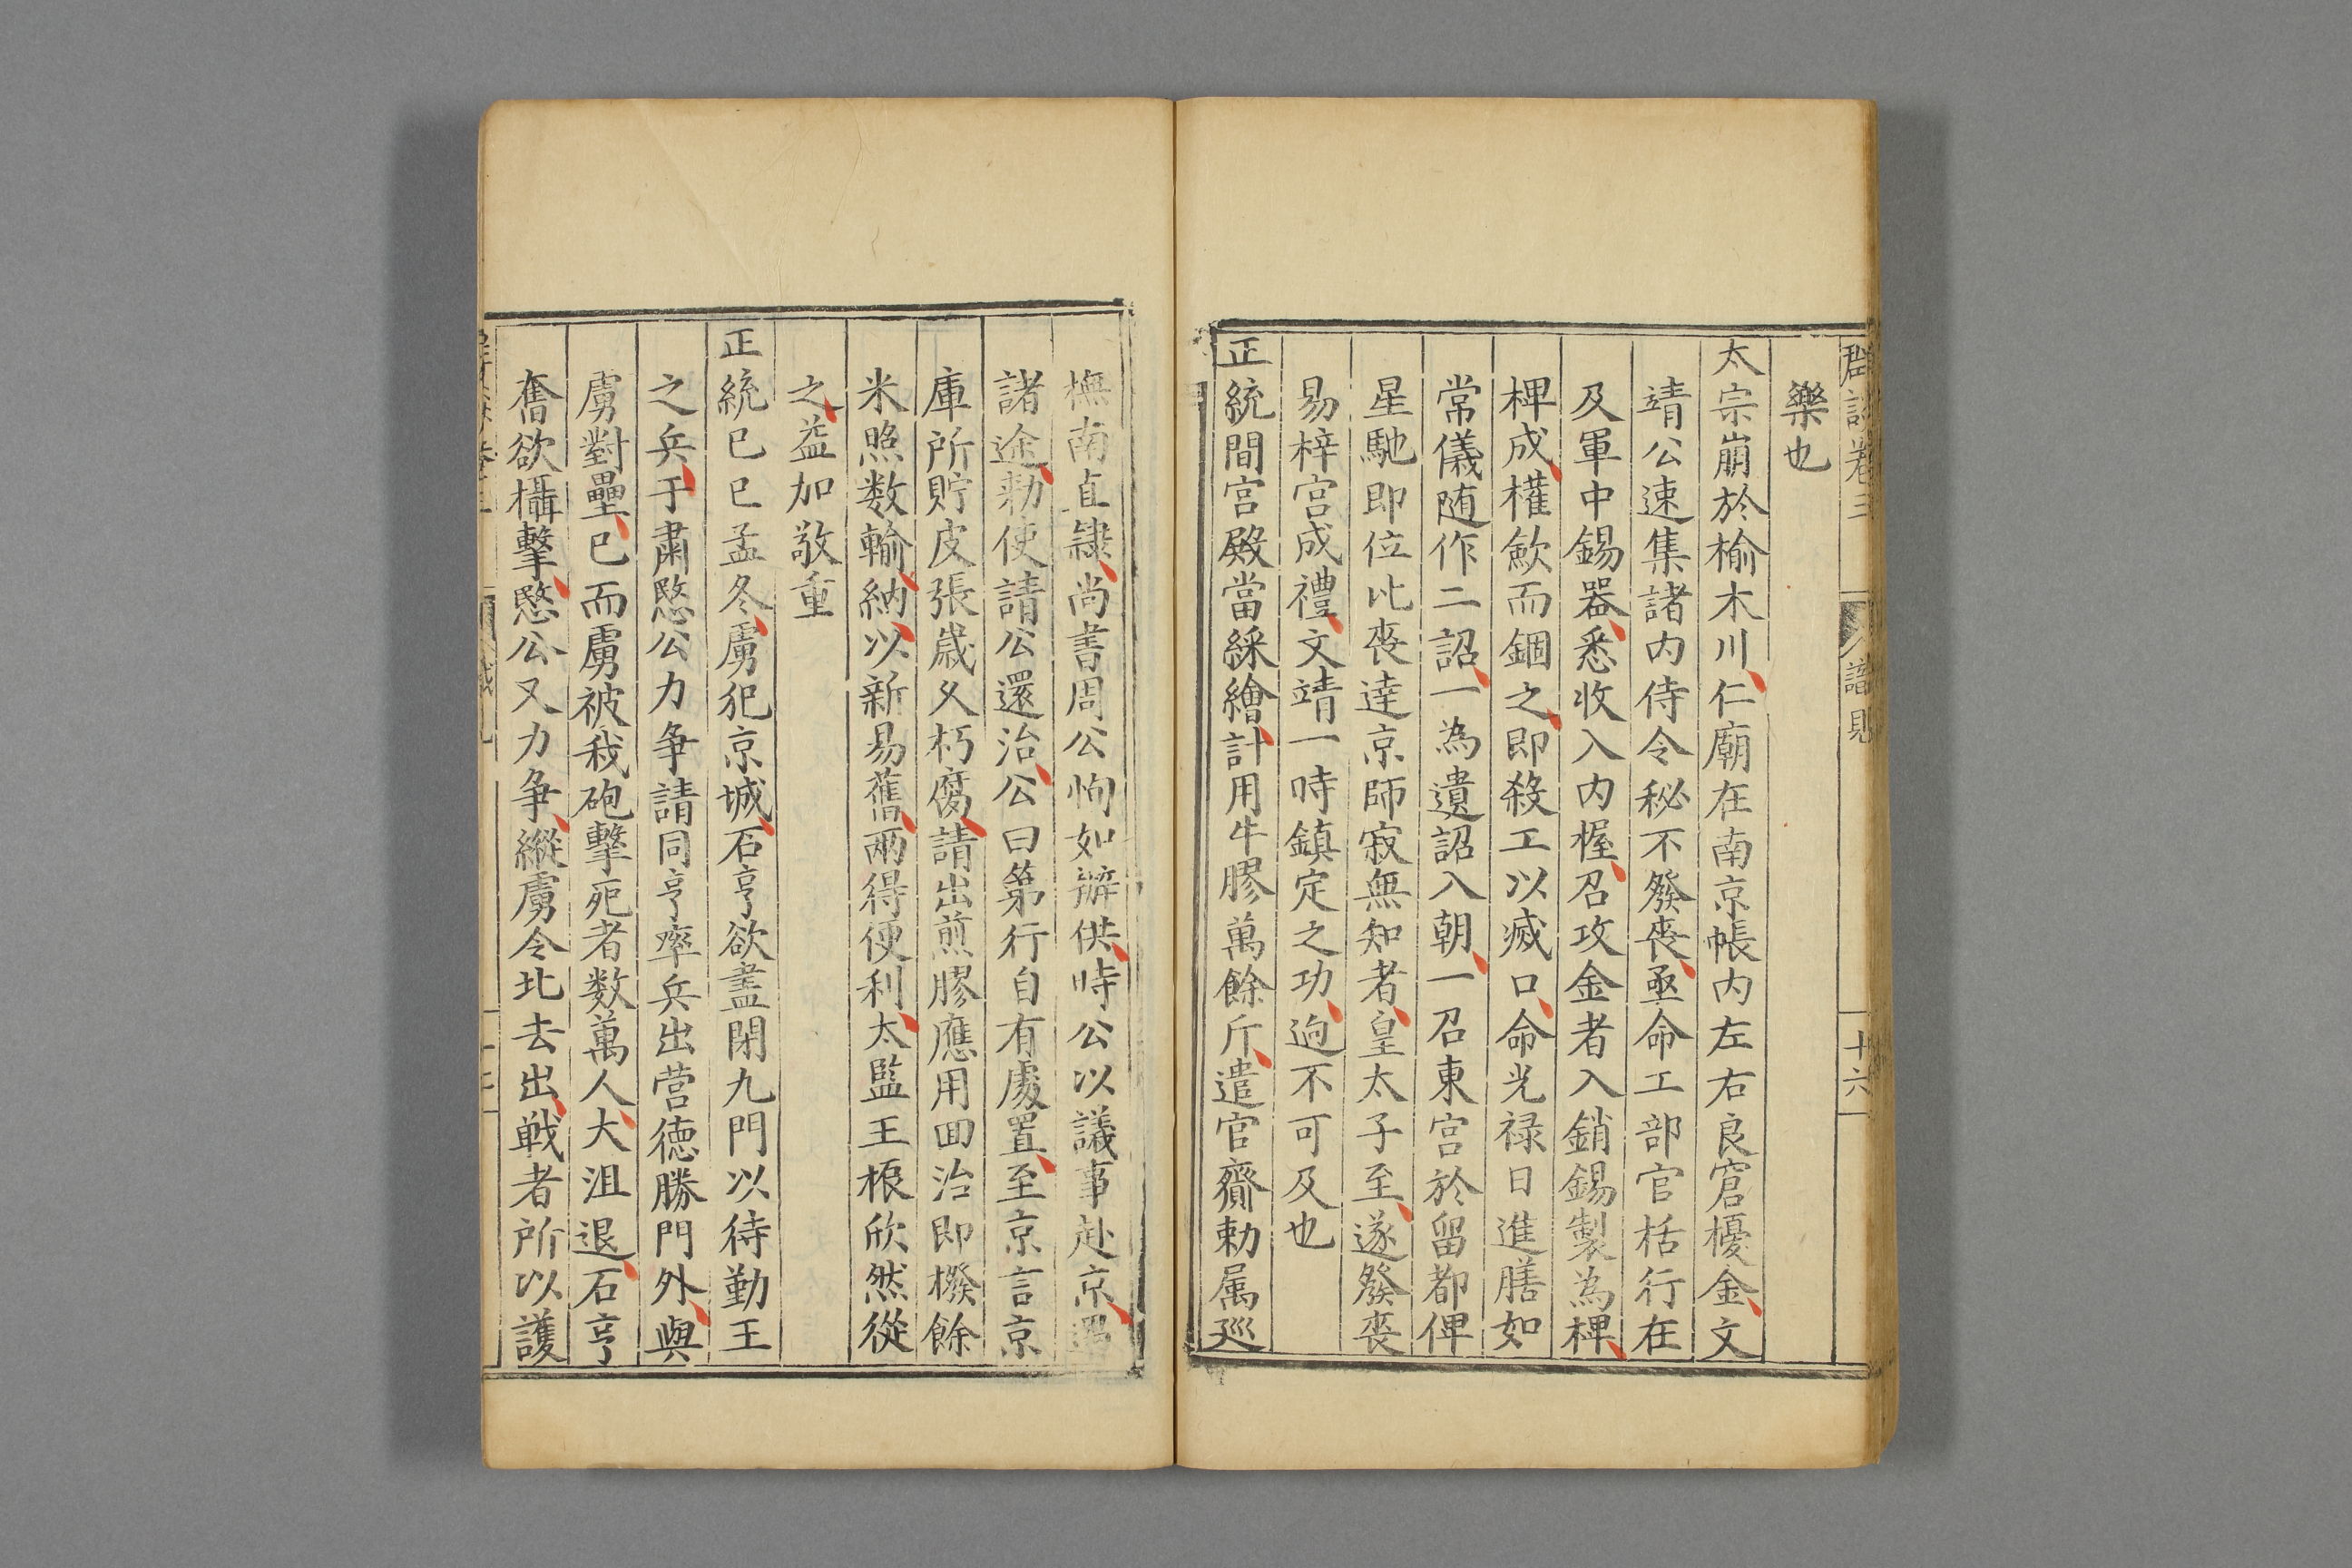 樂也
太宗崩於榆木川仁廟在南京帳内左右良窘櫌金文
靖公速集諸内侍令秘不發喪亟命工部官括行在
及軍中錫器悉收入内楃召攻金者入銷錫製為椑
椑成權歛而錮之即殺工以滅口命光禄日進膳如
常儀随作二詔一為遺詔入朝一召東宮於留都俾
星馳即位比喪達京師寂無知者皇太子至遂發喪
易梓宮成禮文靖一時鎮定之功逈不可及也
正統間宮殿當綵繪計用牛膠萬餘斤遣官齎勅属廵
撫南直隷尚書周公恂如辦供時公以議事赴京遇
諸途勅使請公還治公曰第行自有處置至京言京
庫所貯皮張歳乆朽腐請出煎膠應用囬治即撥餘
米照数輸納以新易舊兩得便利太監王振欣然從
之益加敬重
正統巳巳孟冬虜犯京城石亨欲盡閉九門以待勤王
之兵于肅愍公力争請同亨率兵出营徳勝門外與
虜對壘巳而虜被我砲擊死者数萬人大沮退石亨
奮欲襵擊愍公又力争縱虜令北去出戦者所以護
群談卷三
譜則
十六